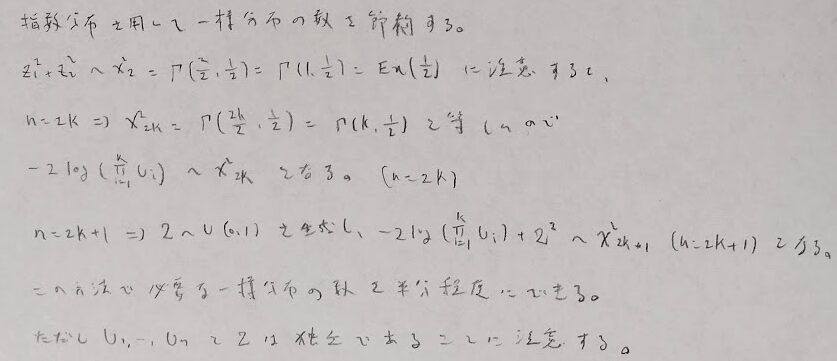 指数分布を用いて一様分布の数を節約する。
z₁²+z₂² ~ χ²₂ = Γ(2/2, 1/2) = Γ(1, 1/2) = Ex(1/2) に注意すると、
n=2k ⇒ χ²₂ₖ = Γ(2k/2, 1/2) = Γ(k, 1/2) と等しいので
-2log(∏ᵢ₌₁ᵏ Uᵢ) ~ χ²₂ₖ となる。 (n=2k)
n=2k+1 ⇒ Z~U(0,1) を生成し、 -2log(∏ᵢ₌₁ᵏ Uᵢ)+Z² ~ χ²₂ₖ₊₁ (n=2k+1) となる。
この方法で必要な一様分布の数を半分程度にできる。
ただし U₁,…,Uₙ と Z は独立であることに注意する。